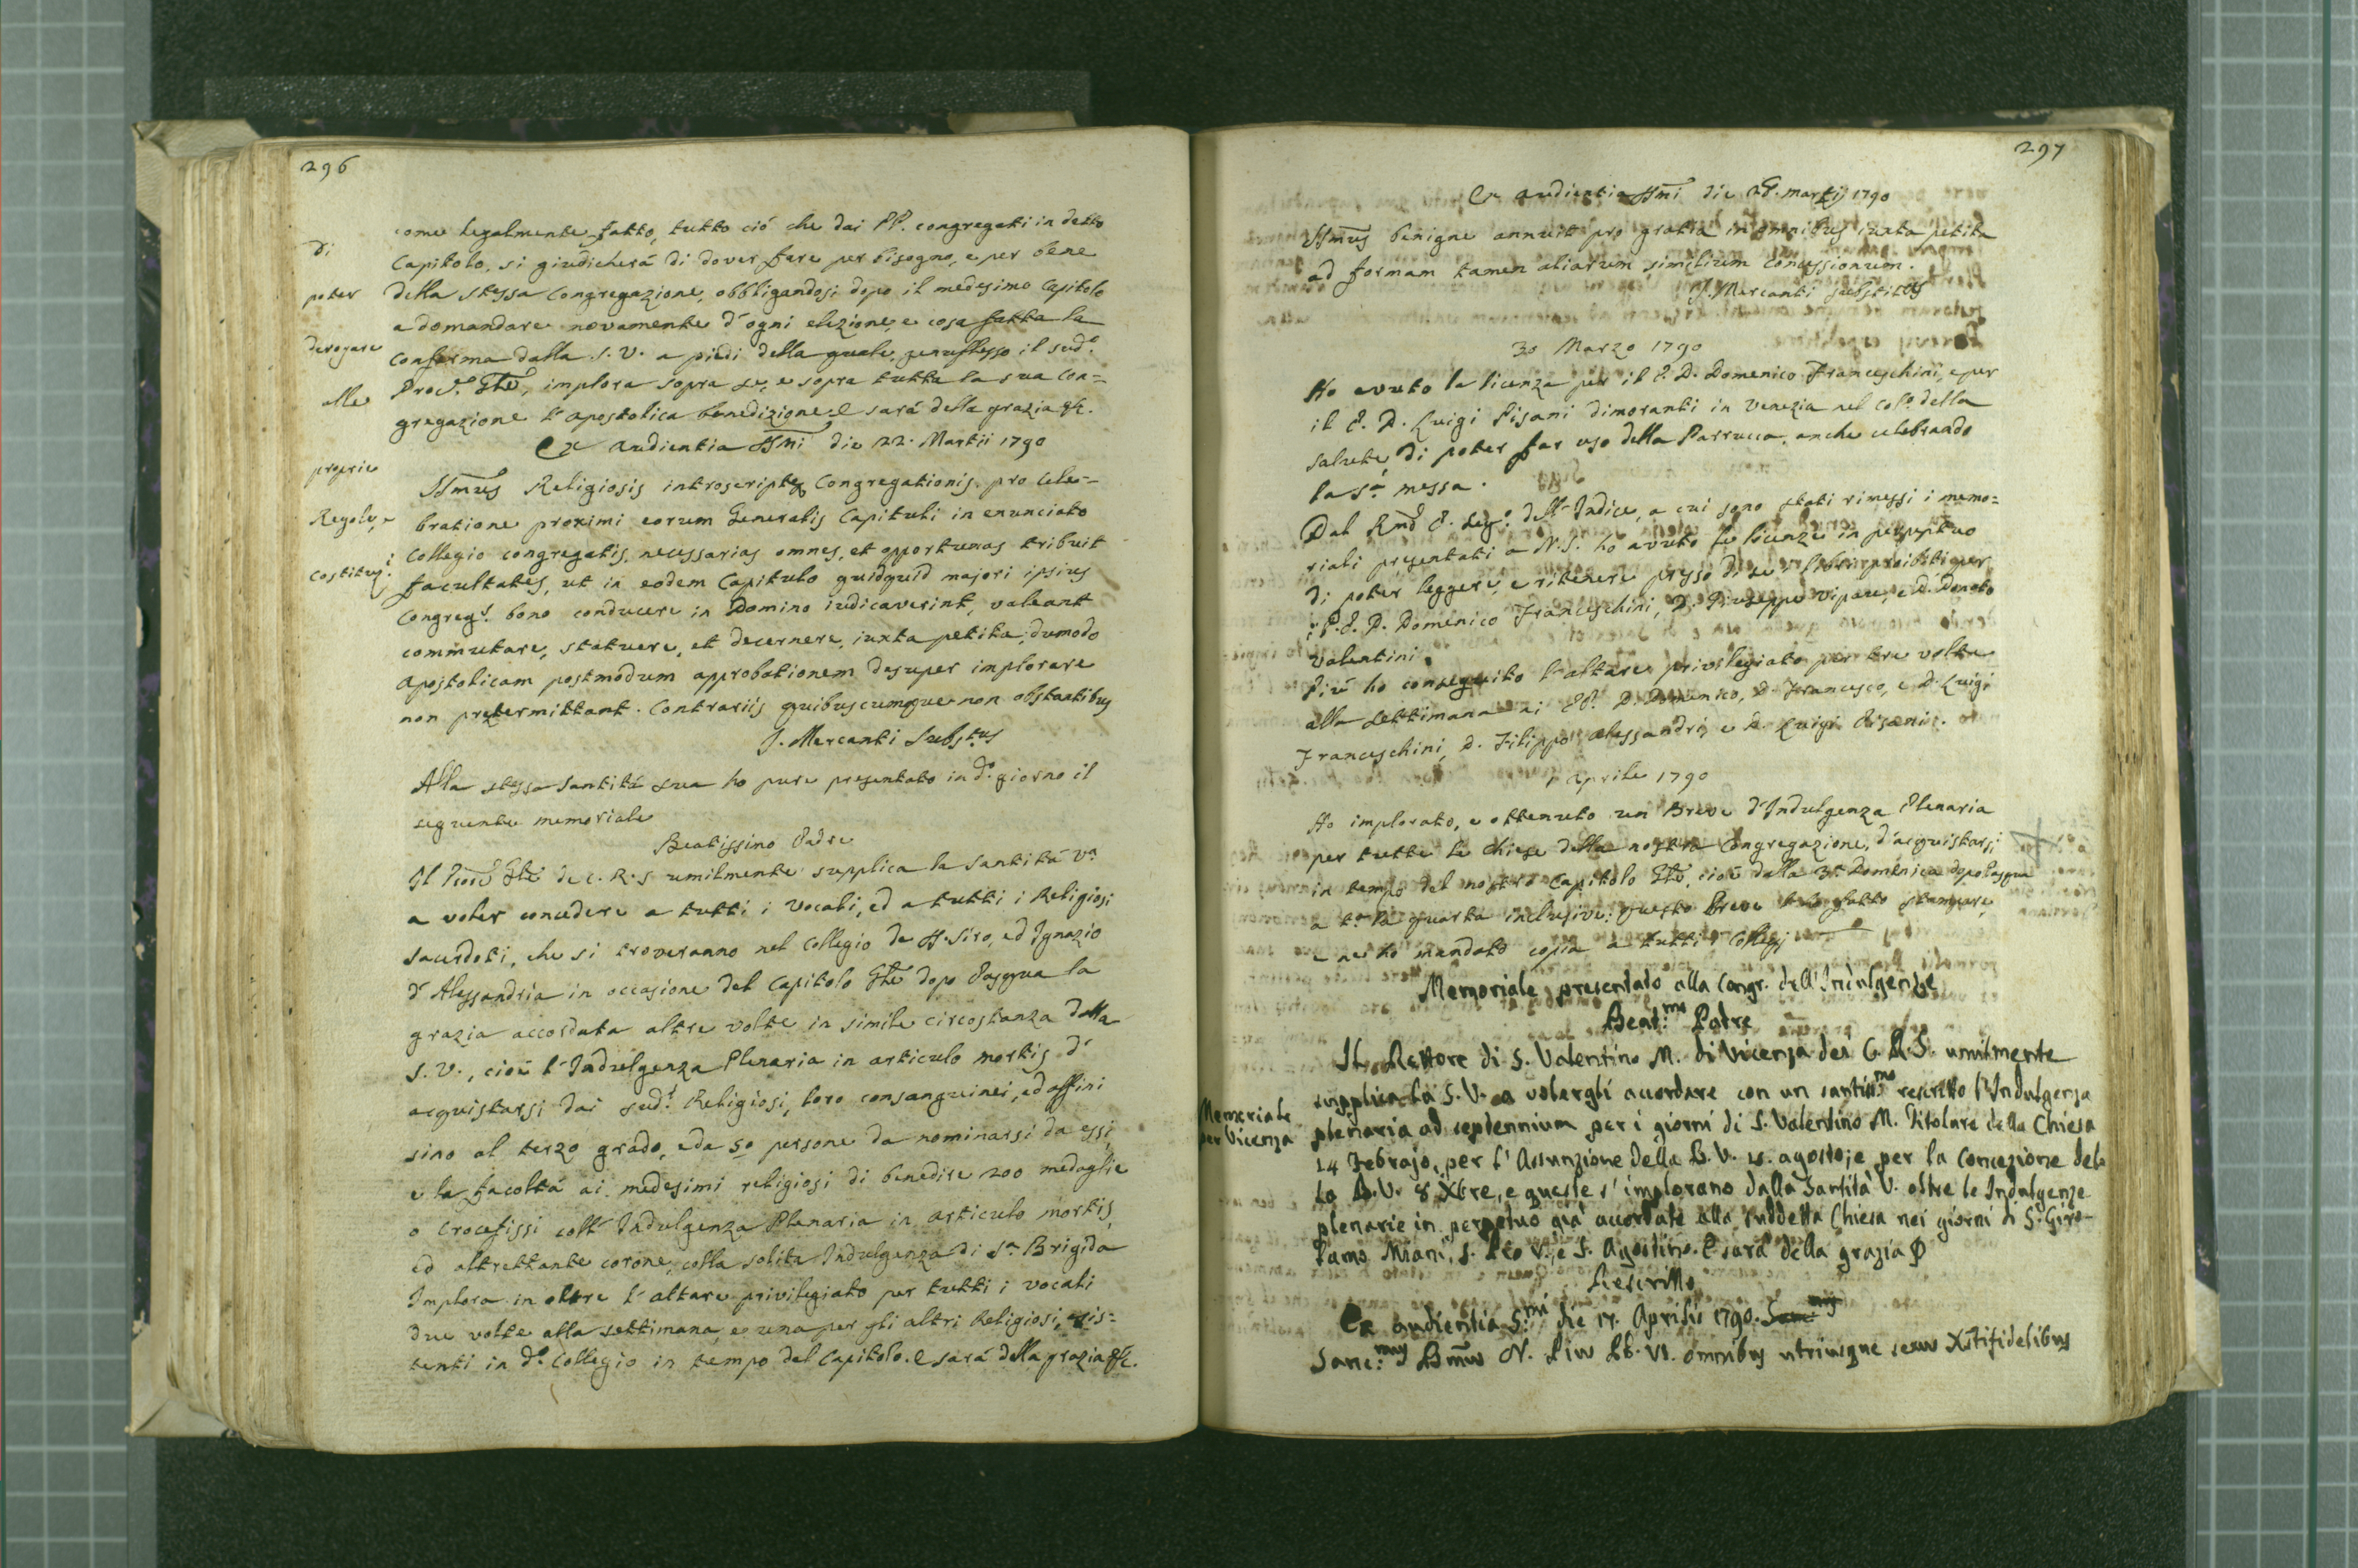 296
di
poter
derogare
alle
proprie
Regole, e
costituz.i
come legalmente fatto, tutto ciò che dai PP. congregati in detto
Capitolo, si giudicherá di dover fare per bisogno, e per bene
della stessa Congregazione, obbligandosi dopo il medesimo Capitolo
a domandare novamente d'ogni elezione, e cosa fatta la
conferma dalla S. V. a piedi della quale genuflesso il sud.o
Proc.r Gñle, implora sopra se, e sopra tutta la sua Con=
gregazione l'apostolica benedizione. E sará della grazia &c.
Ex audientia SSmi die 22. Martii 1790
SSmus Religiosis introscriptæ Congregationis pro cele=
bratione proximi eorum Generalis Capituli in enunciato
Collegio congregatis, necessarias omnes, et opportunas tribuit
facultates, ut in eodem Capitulo quidquid majori ipsius
Congreg.s bono conducere in Domino iudicaverint, valeant
commutare, statuere, et decernere, iuxta petita, dumodo
Apostolicam postmodum approbationem desuper implorare
non prætermittant. Contrariis quibuscumque non obstantibus
J. Mercanti Subst.us
Alla stessa Santitá sua ho pure presentato in d.o giorno il
seguente memoriale
Beatissimo Padre
Il Proc.r Gñle de C. R. S umilmente supplica la Santitá V.a
a voler concedere a tutti i Vocali, ed a tutti i Religiosi
sacerdoti, che si troveranno nel Collegio de SS. Siro, ed Ignazio
d'Alessandria in occasione del Capitolo Gñle dopo Pasqua la
grazia accordata altre volte in simile circostanza dalla
S. V., cioé l'Indulgenza Plenaria in articulo mortis d'
acquistarsi dai sud.i Religiosi, loro consanguinei, ed affini
sino al terzo grado, e da 50 persone da nominarsi da essi
e la facoltá ai medesimi religiosi di benedire 200 medaglie
o Crocefissi coll'Indulgenza Plenaria in articulo mortis,
ed altrettante corone, colla solita Indulgenza di S.a Brigida
Implora in oltre l'altare privilegiato per tutti i vocali
due volte alla settimana, e una per gli altri Religiosi, esis=
tenti in d.o Collegio in tempo del Capitolo. E sará della grazia &c.
297
Ex audientia SSmi die 28. martij 1790
SSmus benigne annuit pro gratia in omnibus iuxta petita
ad formam tamen aliarum similium Concessionum.
J. Mercanti Substitus
30 Marzo 1790
Ho avuto la licenza per il P. D. Domenico Franceschini, e per
il P. D. Luigi Pisani dimoranti in Venezia nel Col.o della
Salute, di poter far uso della Parrucca, anche celebrando
la S.a messa.
Dal Rmo P. Seg.o dell'Indice, a cui sono stati rimessi i memo=
riali presentati a N. S. ho avuto le licenze in perpetuo
di poter leggere, e ritenere presso di se i libri proibiti per
i P.P. D. Domenico Franceschini, D. Giuseppe Vipau, e D. Donato
Valentini.
Piú ho conseguito l'altare privilegiato per tre volte
alla settimana ai PP. D. Domenico, D. Francesco, e D. Luigi
Franceschini, D. Filippo Alessandri, e D. Luigi Pisani.
1 Aprile 1790
Ho implorato, e ottenuto un Breve d'Indulgenza Plenaria
per tutte le Chiese della nostra Congregazione, d'acquistarsi
in tempo del nostro Capitolo Gñle, cioé dalla 3.a Domenica dopo Pasqua
a t.a la quarta inclusive: questo Breve l'ho fatto stampare,
e ne ho mandato copia a tutti i Collegj
Memoriale presentato alla Congr. dell'Indulgenze
Beat.mo Padre
Memoriale
per Vicenza
Il Rettore di S. Valentino M. di Vicenza dei C. R. S. umilmente
supplica la S. V. a volergli accordare con un santis.mo rescritto l'Indulgenza
plenaria ad septennium per i giorni di S. Valentino M. Titolare della Chiesa
14 Febrajo, per l'Assunzione della B. V. 15. agosto, e per la Concezione del-
la B. V. 8 Xbre, e queste s'implorano dalla Santità V. oltre le Indulgenze
plenarie in perpetuo già accordate alla suddetta Chiesa nei giorni di S. Giro-
lamo Miani, S. Pio V., e S. Agostino. E sarà della grazia
Rescritto
Ex audientia S.mi die 17. Aprilis 1790.
Sanc.mus Dñus N. Pius PP. VI. omnibus utriusque sexus Xstifidelibus